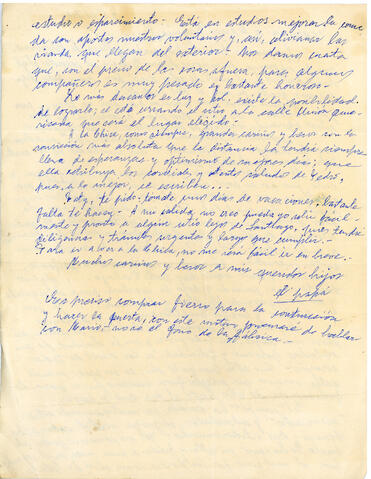 estudio o esparcimiento.- Está en estudios mejorar la comi
da con aportes nuestros voluntarios y, así, aliviarnos las
viandas que llegan del exterior.- Nos damos cuenta
que, con el precio de las cosas afuera, para algunos
compañeros es muy pesado y bastante honeroso.-
Lo más duradero es luz y sol, existe la posibilidad
de lograrlo, se está viendo el sitio, a la calle
será el lugar elegido.-
A la Chica, como siempre, grandes cariños y besos con la
convicción más absoluta que la distancia la tendrá siempre
llena de esperanzas y optimismo de mejores días; que
ella retribuya los saludos, y afecto saludos de Pedro,
pues, a lo mejor, se escriben...-
Paty, te pido, tómate unos días de vacaciones, bastante
falta te hacen.- A mi salida, no creo pueda yo salir fácil-
mente y pronto a algún sitio lejos de Santiago, pues tendré
diligencias y trámites urgentes y largos que cumplir.-
Para ir a ver a la Chica, no me será fácil ir en breve.-
Muchos cariños y besos a mis queridos hijos
El papá
Es preciso comprar fierro para la construcción
y hacer la puerta, con este motivo
con Mario,- no sé el fono de la